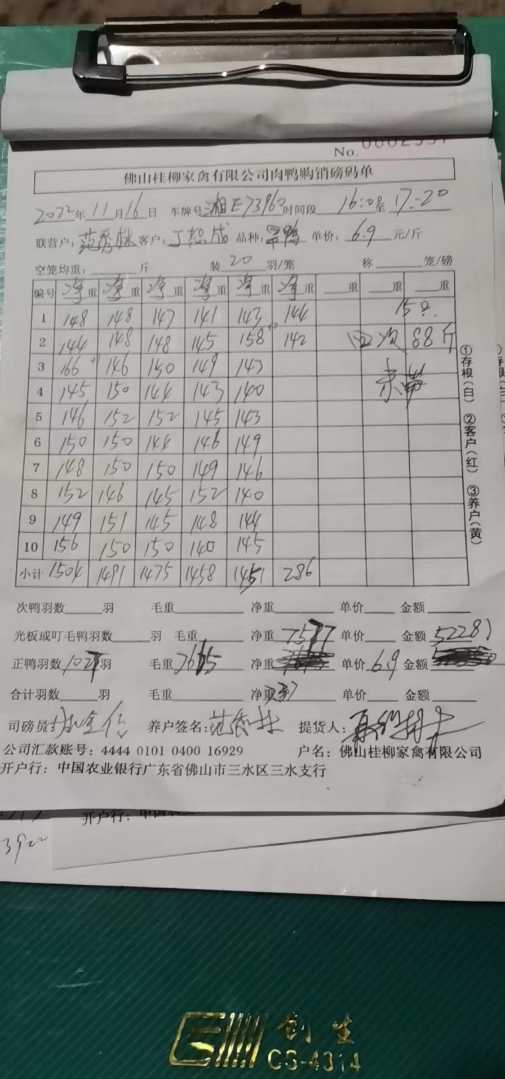 No.
佛山桂柳家禽有限公司肉鸭购销磅码单
2022年11月16日 车牌号湘E73960时间段 16:00至17:20
联营户: 客户: 品种: 单价: 6.9 元/斤
空笼均重: 斤 装 20 羽/笼 称 笼/磅
编号 净重 净重 净重 净重 净重 净重 重 重 重
1 148 148 147 141 143 144 15只
2 144 148 148 145 158 142 次 88斤
3 166 146 150 149 143
4 145 150 144 143 140
5 146 152 152 145 143
6 150 150 144 146 149
7 148 150 150 149 146
8 152 146 145 152 140
9 149 151 145 148 144
10 156 150 150 140 145
小计 1504 1491 1475 1458 1451 286
①存根(白) ②客户(红) ③养户(黄)
次鸭羽数 羽 毛重 净重 单价 金额
光板或叮毛鸭羽数 羽 毛重 净重 7577 单价 金额 52281
正鸭羽数 羽 毛重 7665 净重 单价 6.9 金额
合计羽数 羽 毛重 净重 单价 金额
司磅员: 养户签名: 提货人:
公司汇款账号: 4444 0101 0400 16929 户名: 佛山桂柳家禽有限公司
开户行: 中国农业银行广东省佛山市三水区三水支行
开户行:
创生
CS-4314